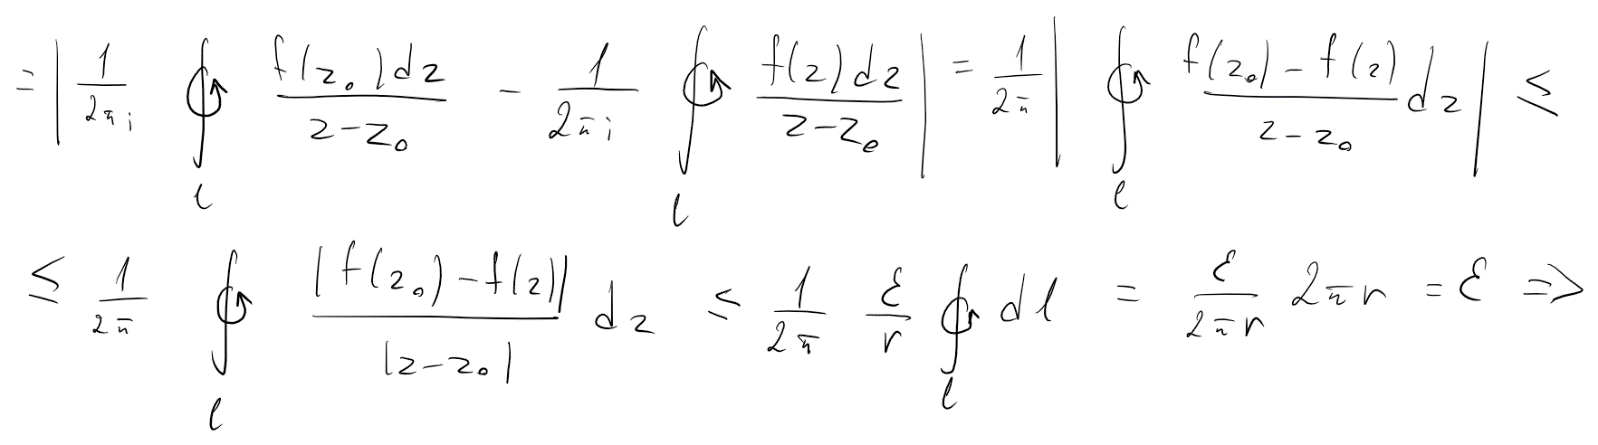 = | \frac{1}{2πi} ∮_l \frac{f(z_0)dz}{z-z_0} - \frac{1}{2πi} ∮_l \frac{f(z)dz}{z-z_0} | = \frac{1}{2π} | ∮_l \frac{f(z_0)-f(z)}{z-z_0} dz | ≤
≤ \frac{1}{2π} ∮_l \frac{|f(z_0)-f(z)|}{|z-z_0|} dz ≤ \frac{1}{2π} \frac{ε}{r} ∮_l dl = \frac{ε}{2πr} 2πr = ε =>